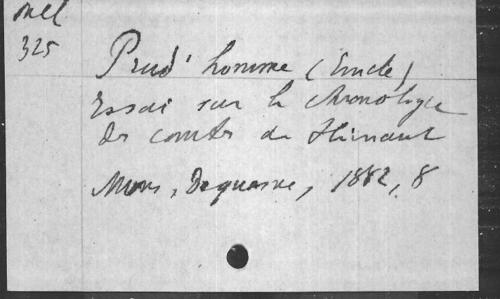 Mel
325
Prud'homme (Emile)
Essai sur la chronologie
des comtes de Hainaut
Mons, Dequesne, 1882, 8